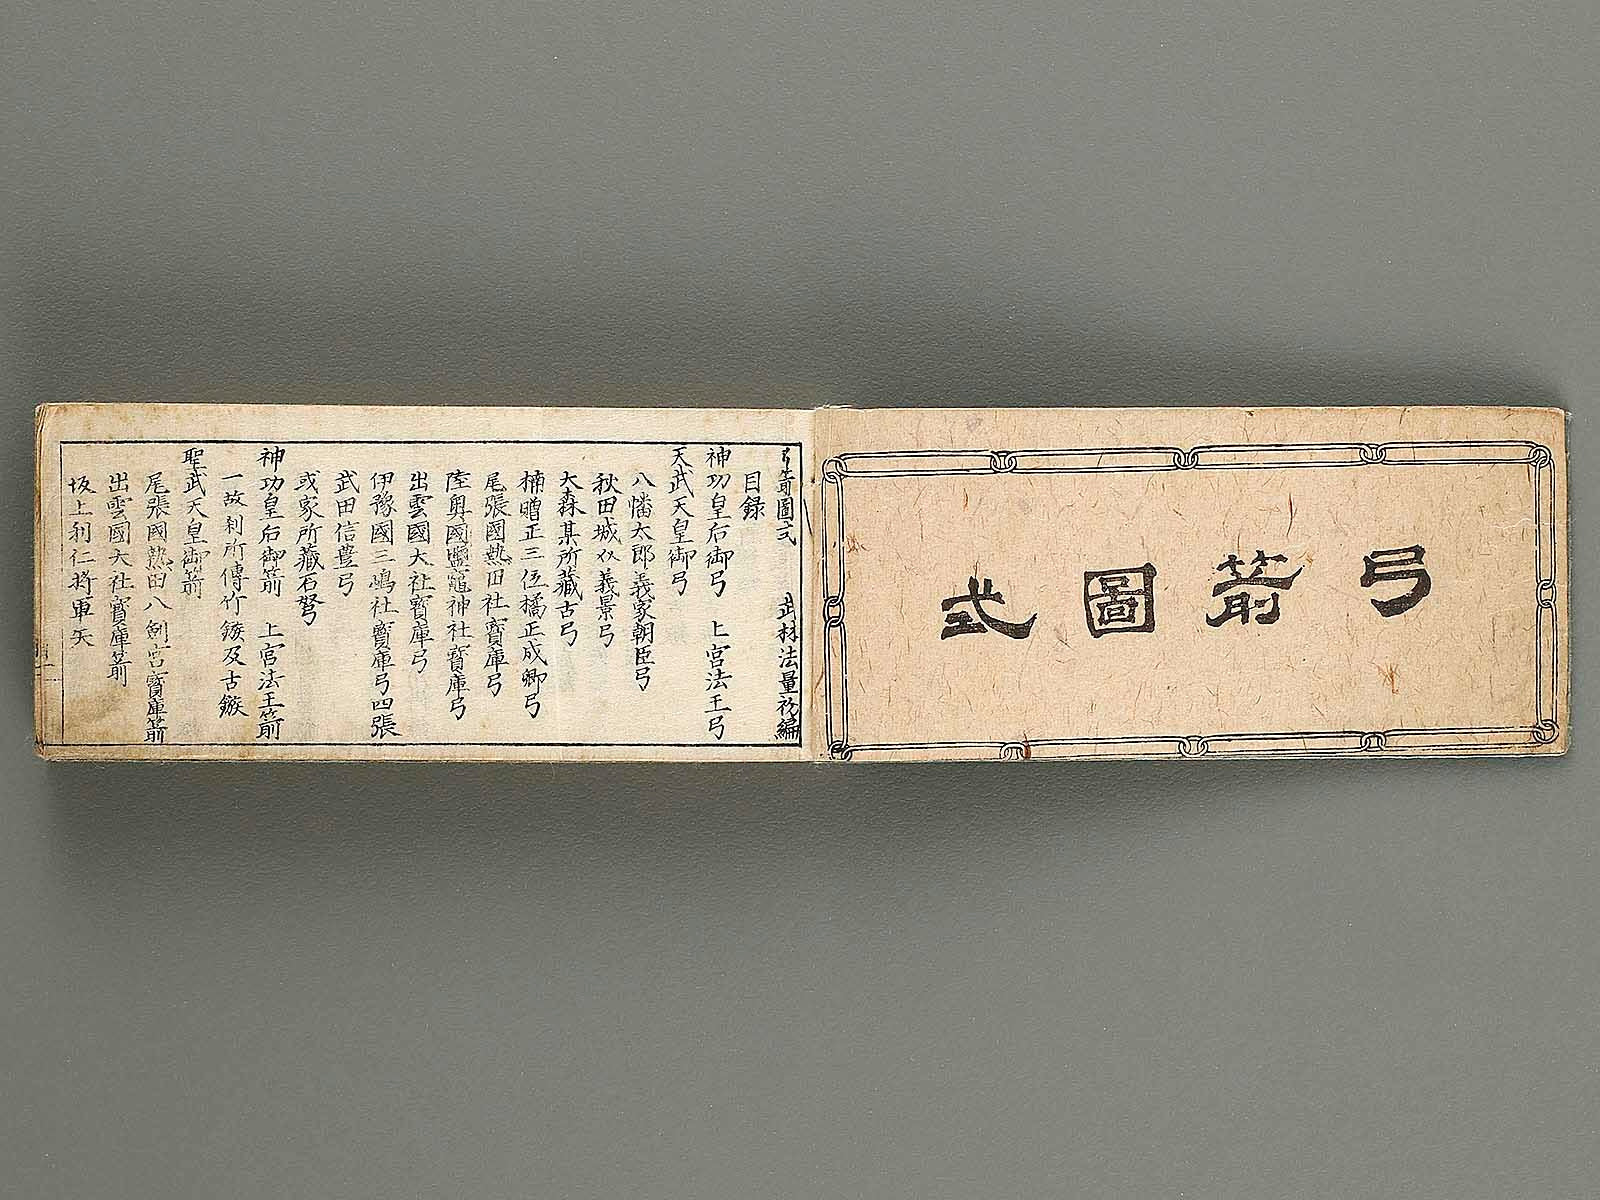 弓箭圖式
弓箭圖式 武林法量初編
目録
神功皇后御弓 上宮法王弓
天武天皇御弓
八幡太郎義家朝臣弓
秋田城介義景弓
大森某所藏古弓
楠贈正三位橘正成卿弓
尾張國熱田社寳庫弓
陸奥國鹽竈神社寳庫弓
出雲國大社寳庫弓
伊豫國三嶋社寳庫弓四張
武田信豊弓
或家所藏石弩
神功皇后御箭 上宮法王箭
一故刹所傳竹鏃及古鏃
聖武天皇御箭
尾張國熱田八劍宮寳庫箭
出雲國大社寳庫箭
坂上利仁將軍矢